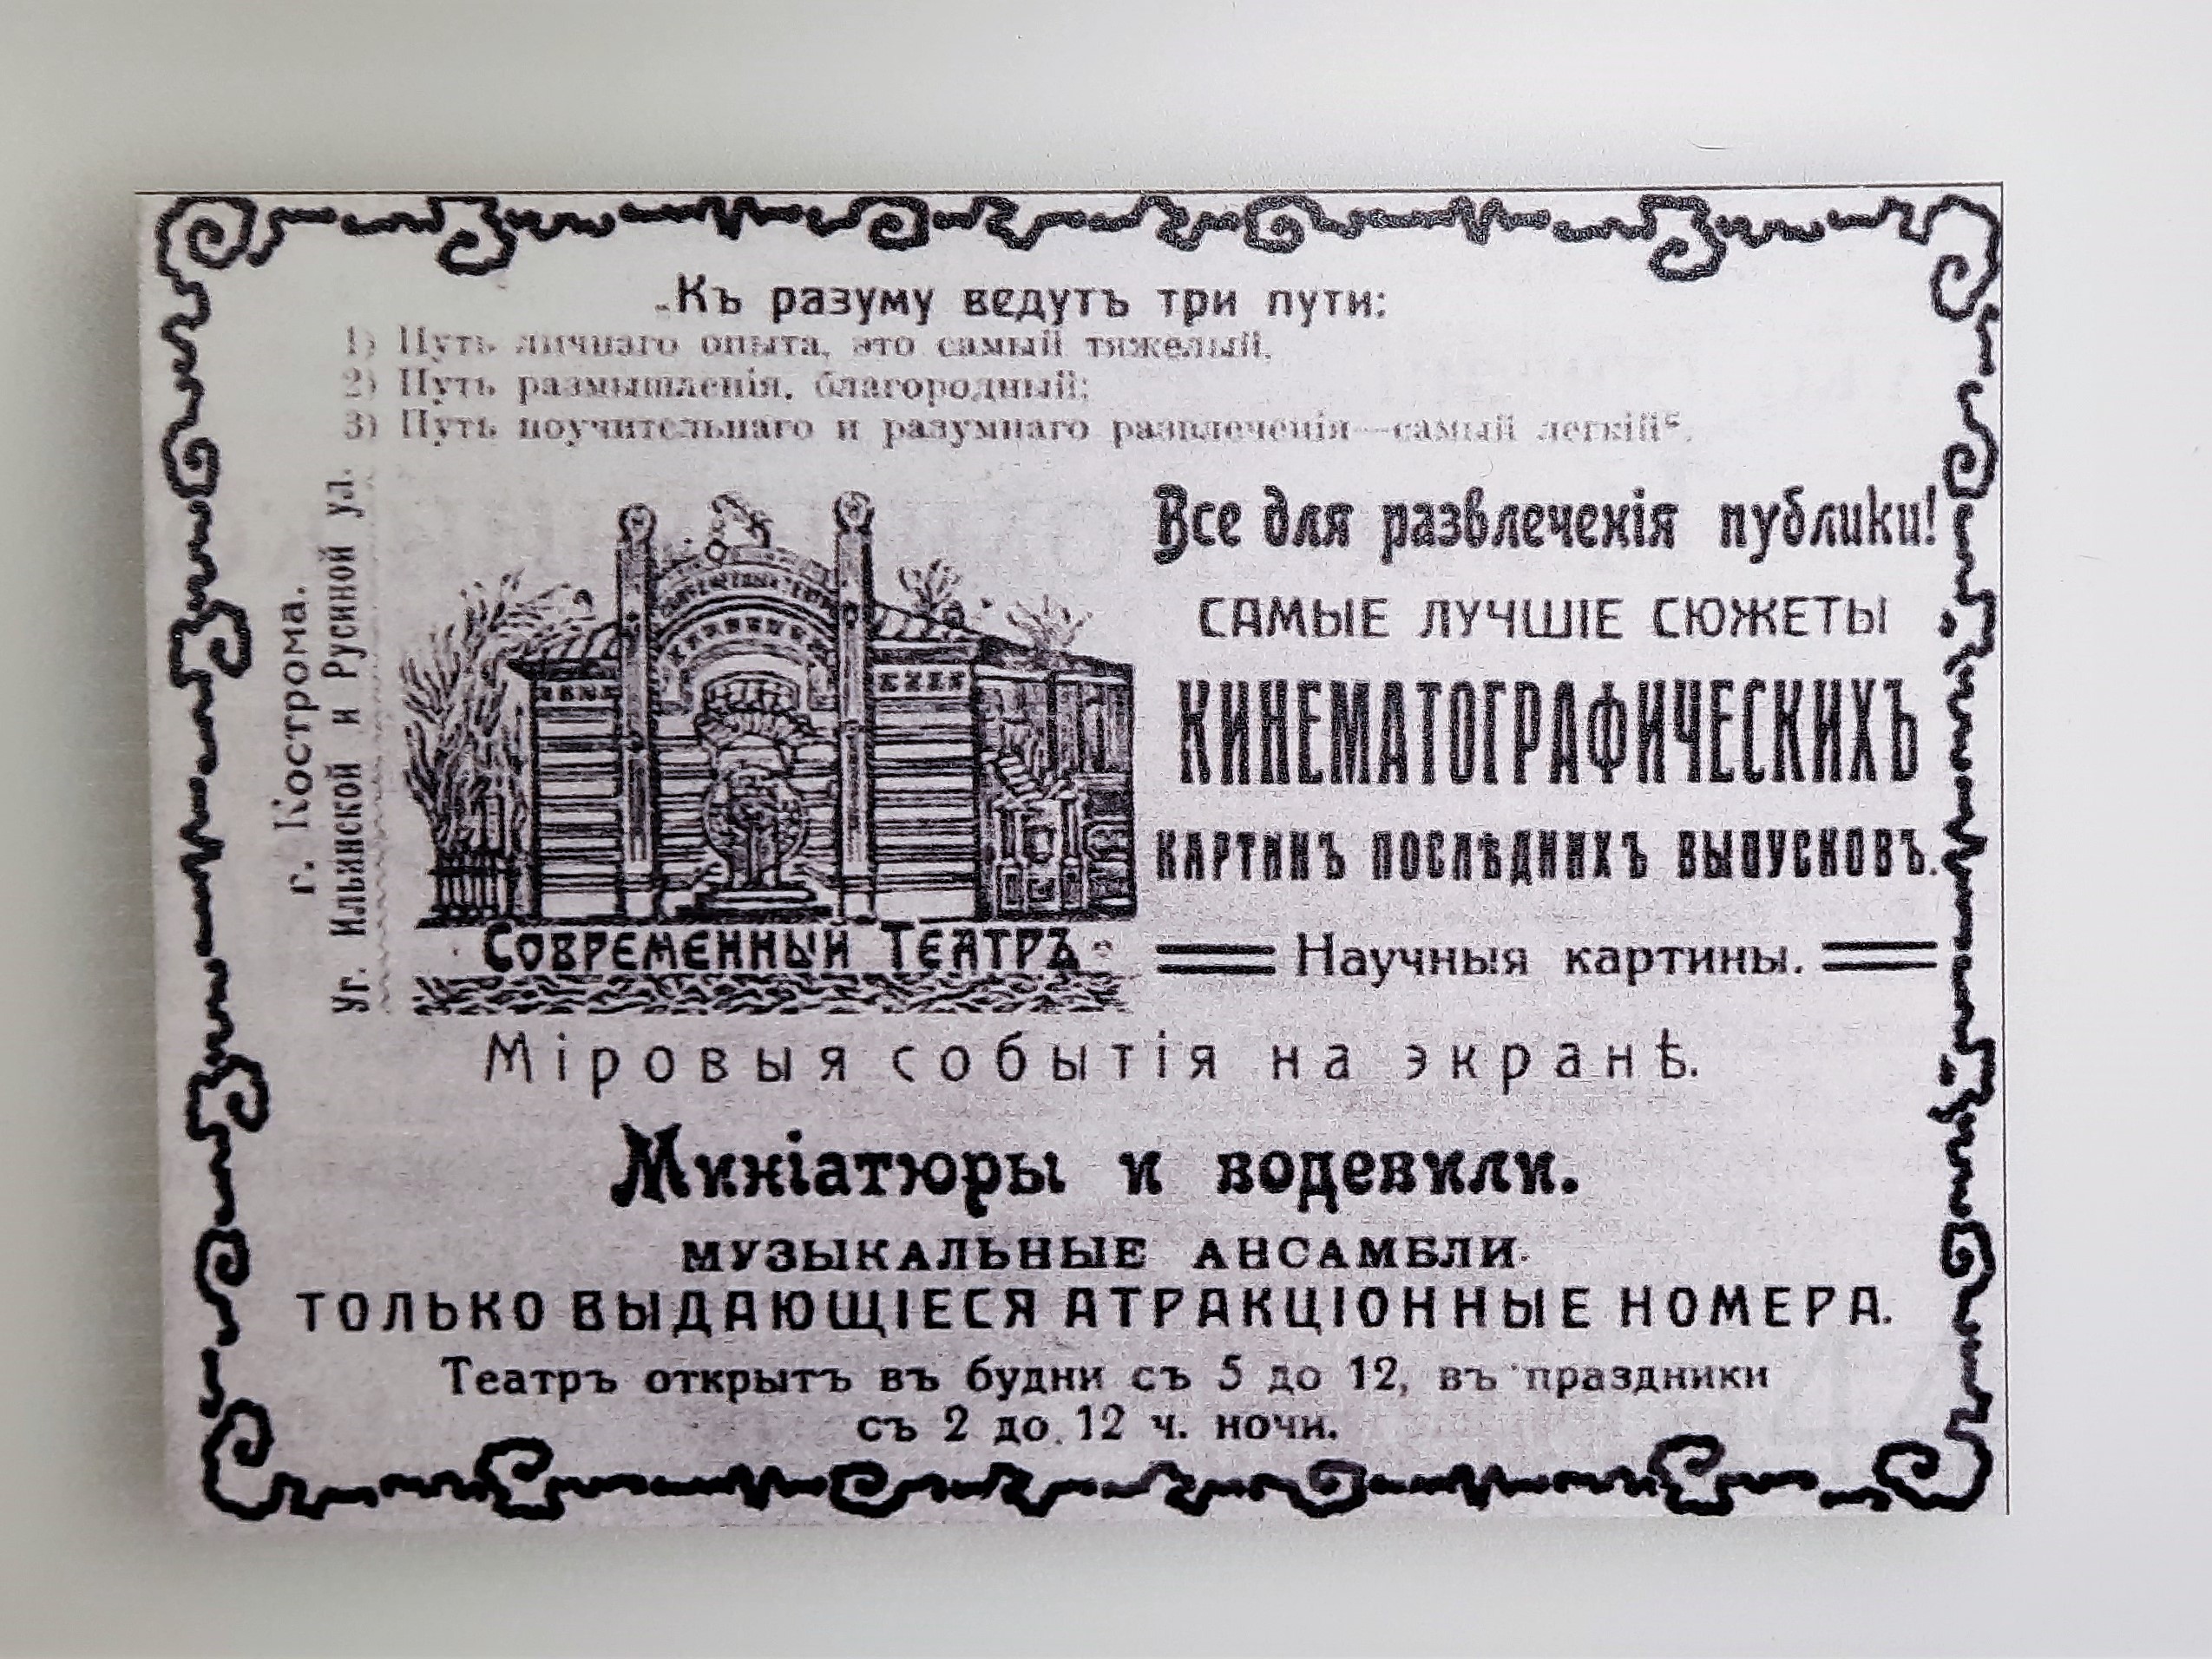 „Къ разуму ведутъ три пути:
1) Путь личнаго опыта, это самый тяжелый,
2) Путь размышленія, благородный;
3) Путь поучительнаго и разумнаго развлеченія—самый легкій“.
г. Кострома.
Уг. Ильинской и Русиной ул.
СОВРЕМЕННЫЙ ТЕАТРЪ
Все для развлеченія публики!
САМЫЕ ЛУЧШІЕ СЮЖЕТЫ
КИНЕМАТОГРАФИЧЕСКИХЪ
КАРТИНЪ ПОСЛѢДНИХЪ ВЫПУСКОВЪ.
Научныя картины.
Міровыя событія на экранѣ.
Миніатюры и водевили.
МУЗЫКАЛЬНЫЕ АНСАМБЛИ.
ТОЛЬКО ВЫДАЮЩІЕСЯ АТРАКЦІОННЫЕ НОМЕРА.
Театръ открытъ въ будни съ 5 до 12, въ праздники
съ 2 до 12 ч. ночи.